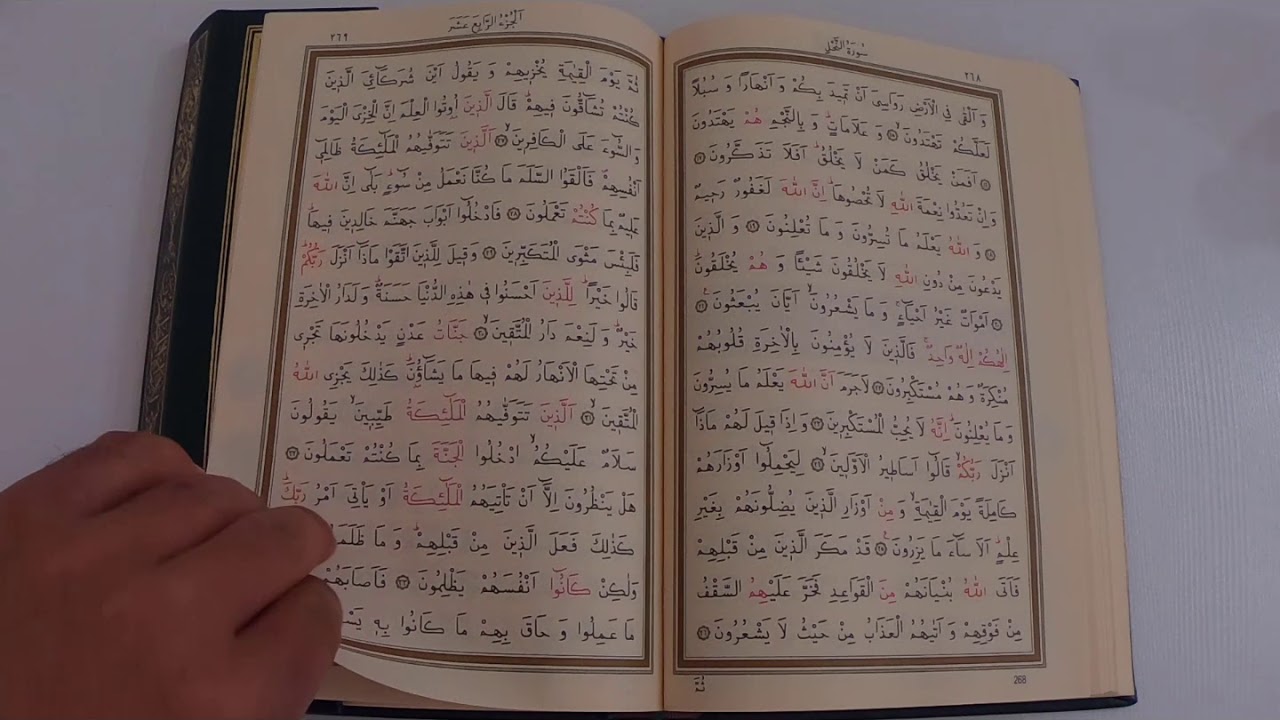 سُورَةُ النَّحْلِ
٢٦٨
وَ اَلْقٰى فِي الْاَرْضِ رَوَاسِىَ اَنْ تَمٖيدَ بِكُمْ وَ اَنْهَارًا وَ سُبُلًا
لَعَلَّكُمْ تَهْتَدُونَۙ ١٥ وَ عَلَامَاتٍؕ وَ بِالنَّجْمِ هُمْ يَهْتَدُونَ
١٦ اَفَمَنْ يَخْلُقُ كَمَنْ لَا يَخْلُقُؕ اَفَلَا تَذَكَّرُونَ ١٧
وَ اِنْ تَعُدُّوا نِعْمَةَ اللّٰهِ لَا تُحْصُوهَاؕ اِنَّ اللّٰهَ لَغَفُورٌ رَحٖيمٌ
١٨ وَ اللّٰهُ يَعْلَمُ مَا تُسِرُّونَ وَ مَا تُعْلِنُونَ ١٩ وَ الَّذٖينَ
يَدْعُونَ مِنْ دُونِ اللّٰهِ لَا يَخْلُقُونَ شَيْئًا وَ هُمْ يُخْلَقُونَؕ
٢٠ اَمْوَاتٌ غَيْرُ اَحْيَاءٍۚ وَ مَا يَشْعُرُونَۙ اَيَّانَ يُبْعَثُونَ۟ ٢١
اِلٰهُكُمْ اِلٰهٌ وَاحِدٌۚ فَالَّذٖينَ لَا يُؤْمِنُونَ بِالْاٰخِرَةِ قُلُوبُهُمْ
مُنْكِرَةٌ وَ هُمْ مُسْتَكْبِرُونَ ٢٢ لَاجَرَمَ اَنَّ اللّٰهَ يَعْلَمُ مَا يُسِرُّونَ
وَ مَا يُعْلِنُونَؕ اِنَّهُ لَا يُحِبُّ الْمُسْتَكْبِرٖينَ ٢٣ وَ اِذَا قٖيلَ لَهُمْ مَاذَٓا
اَنْزَلَ رَبُّكُمْۙ قَالُٓوا اَسَاطٖيرُ الْاَوَّلٖينَۙ ٢٤ لِيَحْمِلُٓوا اَوْزَارَهُمْ
كَامِلَةً يَوْمَ الْقِيٰمَةِۙ وَ مِنْ اَوْزَارِ الَّذٖينَ يُضِلُّونَهُمْ بِغَيْرِ
عِلْمٍؕ اَلَا سَٓاءَ مَا يَزِرُونَ۟ ٢٥ قَدْ مَكَرَ الَّذٖينَ مِنْ قَبْلِهِمْ
فَاَتَى اللّٰهُ بُنْيَانَهُمْ مِنَ الْقَوَاعِدِ فَخَرَّ عَلَيْهِمُ السَّقْفُ
مِنْ فَوْقِهِمْ وَ اَتٰيهُمُ الْعَذَابُ مِنْ حَيْثُ لَا يَشْعُرُونَ ٢٦
ثُمَّ
268
اَلْجُزْءُ الرَّابِعَ عَشَرَ
٢٦٩
ثُمَّ يَوْمَ الْقِيٰمَةِ يُخْزٖيهِمْ وَ يَقُولُ اَيْنَ شُرَكَٓائِيَ الَّذٖينَ
كُنْتُمْ تُشَٓاقُّونَ فٖيهِمْؕ قَالَ الَّذٖينَ اُوتُوا الْعِلْمَ اِنَّ الْخِزْيَ الْيَوْمَ
وَ السُّٓوءَ عَلَى الْكَافِرٖينَۙ ٢٧ اَلَّذٖينَ تَتَوَفّٰيهُمُ الْمَلٰٓئِكَةُ ظَالِمٖٓى
اَنْفُسِهِمْࣕ فَاَلْقَوُا السَّلَمَ مَا كُنَّا نَعْمَلُ مِنْ سُٓوءٍؕ بَلٰٓى اِنَّ اللّٰهَ
عَلٖيمٌ بِمَا كُنْتُمْ تَعْمَلُونَ ٢٨ فَادْخُلُٓوا اَبْوَابَ جَهَنَّمَ خَالِدٖينَ فٖيهَاؕ
فَلَبِئْسَ مَثْوَى الْمُتَكَبِّرٖينَ ٢٩ وَ قٖيلَ لِلَّذٖينَ اتَّقَوْا مَاذَٓا اَنْزَلَ رَبُّكُمْؕ
قَالُوا خَيْرًاؕ لِلَّذٖينَ اَحْسَنُوا فٖى هٰذِهِ الدُّنْيَا حَسَنَةٌؕ وَ لَدَارُ الْاٰخِرَةِ
خَيْرٌؕ وَ لَنِعْمَ دَارُ الْمُتَّقٖينَۙ ٣٠ جَنَّاتُ عَدْنٍ يَدْخُلُونَهَا تَجْرٖى
مِنْ تَحْتِهَا الْاَنْهَارُ لَهُمْ فٖيهَا مَا يَشَٓاؤُنَؕ كَذٰلِكَ يَجْزِى اللّٰهُ
الْمُتَّقٖينَۙ ٣١ اَلَّذٖينَ تَتَوَفّٰيهُمُ الْمَلٰٓئِكَةُ طَيِّبٖينَۙ يَقُولُونَ
سَلَامٌ عَلَيْكُمُۙ ادْخُلُوا الْجَنَّةَ بِمَا كُنْتُمْ تَعْمَلُونَ ٣٢
هَلْ يَنْظُرُونَ اِلَّٓا اَنْ تَاْتِيَهُمُ الْمَلٰٓئِكَةُ اَوْ يَاْتِىَ اَمْرُ رَبِّكَؕ
كَذٰلِكَ فَعَلَ الَّذٖينَ مِنْ قَبْلِهِمْؕ وَ مَا ظَلَمَ
وَلٰكِنْ كَانُٓوا اَنْفُسَهُمْ يَظْلِمُونَ ٣٣ فَاَصَابَهُمْ
مَا عَمِلُوا وَ حَاقَ بِهِمْ مَا كَانُوا بِهٖ